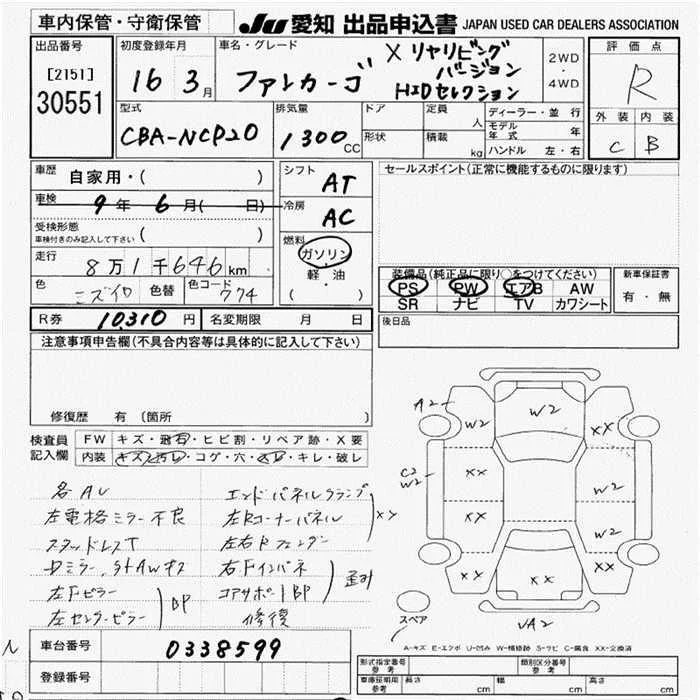 車内保管・守衛保管
JU 愛知 出品申込書 JAPAN USED CAR DEALERS ASSOCIATION
出品番号
[2151]
30551
初度登録年月
16 3月
車名・グレード
ファンカーゴ
X リヤリビング
バージョン
HIDセレクション
2WD
・
4WD
評価点
R
外装 内装
C B
型式
CBA-NCP20
排気量
1300 CC
ドア
形状
定員 人
積載 kg
ディーラー・並行
モデル年式 年
ハンドル 左・右
車歴
自家用・( )
車検 9年 6月( 日)
受検形態
車検付きのみ記入して下さい ( )
走行
8万1千646km
色 ミズイロ 色替 色コード 774
シフト AT
冷房 AC
燃料
ガソリン
軽・油
( )
セールスポイント(正常に機能するものに限ります)
装備品(純正品に限り○をつけてください)
PS PW エアB AW
SR ナビ TV カワシート
新車保証書
有・無
R券 10,310 円 名変期限 月 日
後日品
注意事項申告欄(不具合内容等は具体的に記入して下さい)
修復歴 有(箇所 )
検査員
記入欄
FW キズ・飛石・ヒビ割・リペア跡・X要
内装 キズ・汚レ・コゲ・穴・スレ・キレ・破レ
各AU
左電格ミラー不良
スタッドレスT
Dミラー、StAwキズ
左Fピラー
左センターピラー
BP
エンドパネルクランプ
左Rコーナーパネル
左右Rフェンダー
XX
右Fインパネ
コアサポートBP
修復
歪み
A2
W2
W2
XX
C2
W2
XX
XX
W2
W2
XX
XX
XX
VA2
スペア
A-キズ E-エクボ U-凹み W-補修跡 S-サビ C-腐食 XX-交換済
車台番号 0338599
登録番号
型式指定番号
参考
類別区分番号
参考
車庫証明用
参考
長さ cm 幅 cm 高さ cm